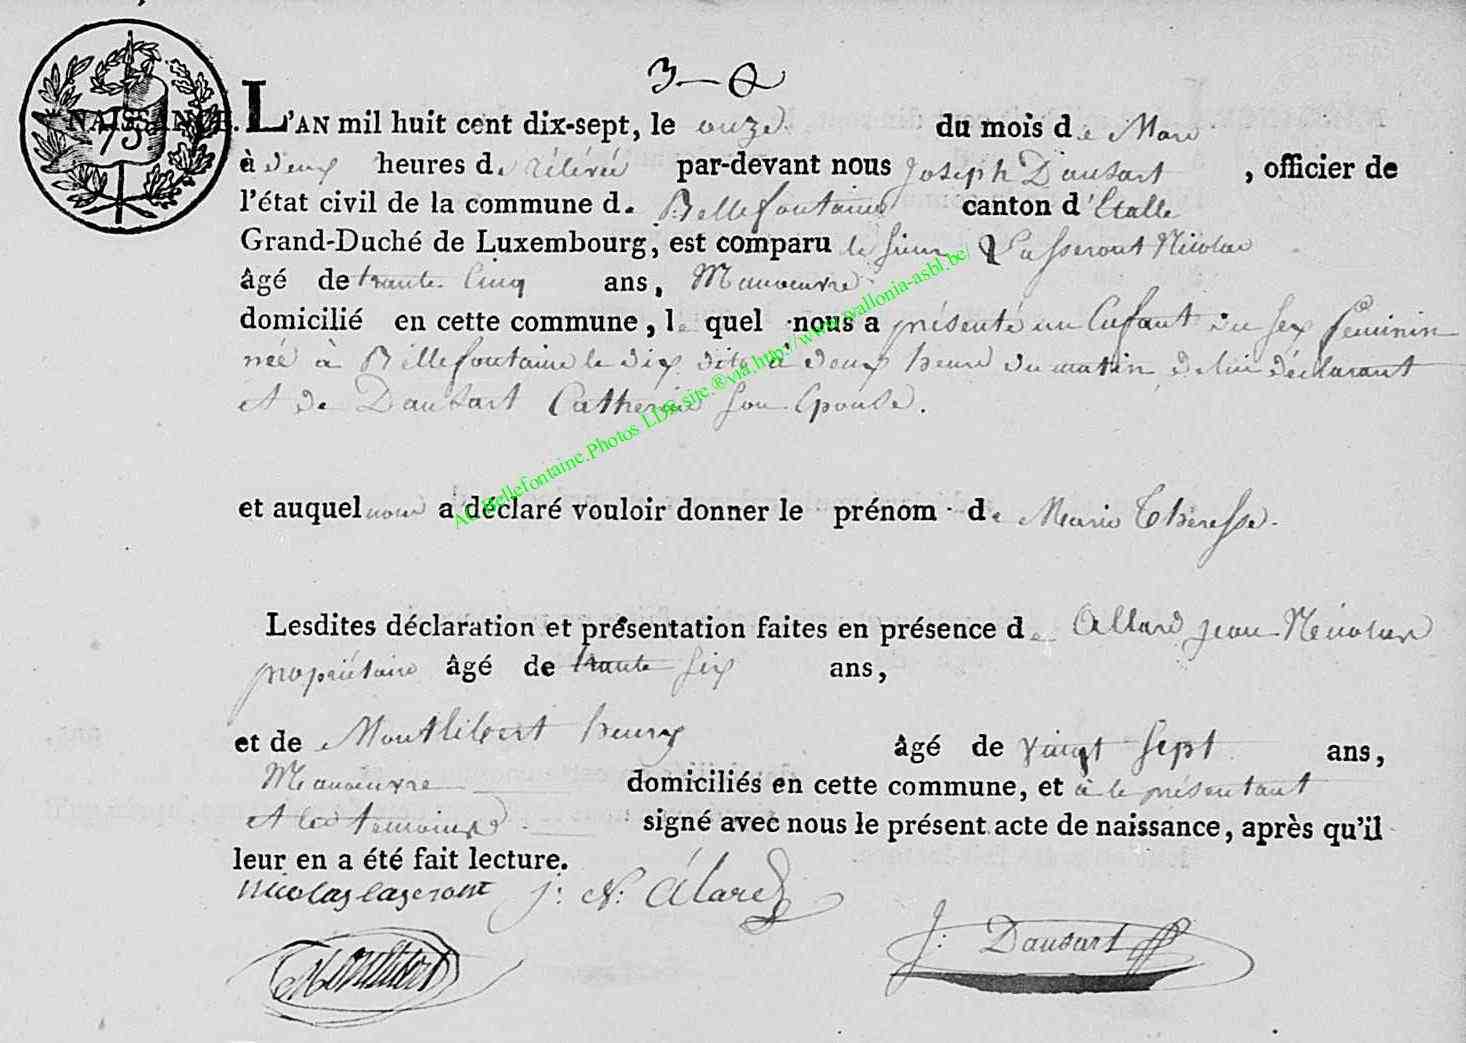 3
NAISSANCE. L'AN mil huit cent dix-sept, le onze du mois de Mars
à deux heures de rélévée par-devant nous Joseph Dausart, officier de
l'état civil de la commune de Bellefontaine canton d'Etalle
Grand-Duché de Luxembourg, est comparu le sieur Lasseront Nicolas
âgé de trante Cinq ans, Manoeuvre
domicilié en cette commune, le quel nous a présenté un Enfant du sex feminin
née à Bellefontaine le dix dito à deux heure du matin de lui déclarant
et de Dausart Catherine son Epouse.
et auquel nous a déclaré vouloir donner le prénom de Marie Theresse.
Lesdites déclaration et présentation faites en présence de Allard jean Nicolas
propriétaire âgé de trante six ans,
et de Montlibert henry âgé de vaingt sept ans,
Manoeuvre domiciliés en cette commune, et à le présentant
et les temoins signé avec nous le présent acte de naissance, après qu'il
leur en a été fait lecture.
nicolas laseront j: N: Alard
Montlibert J: Dausart
AC Bellefontaine.Photos LDS sije.®via http://www.wallonia-asbl.be/